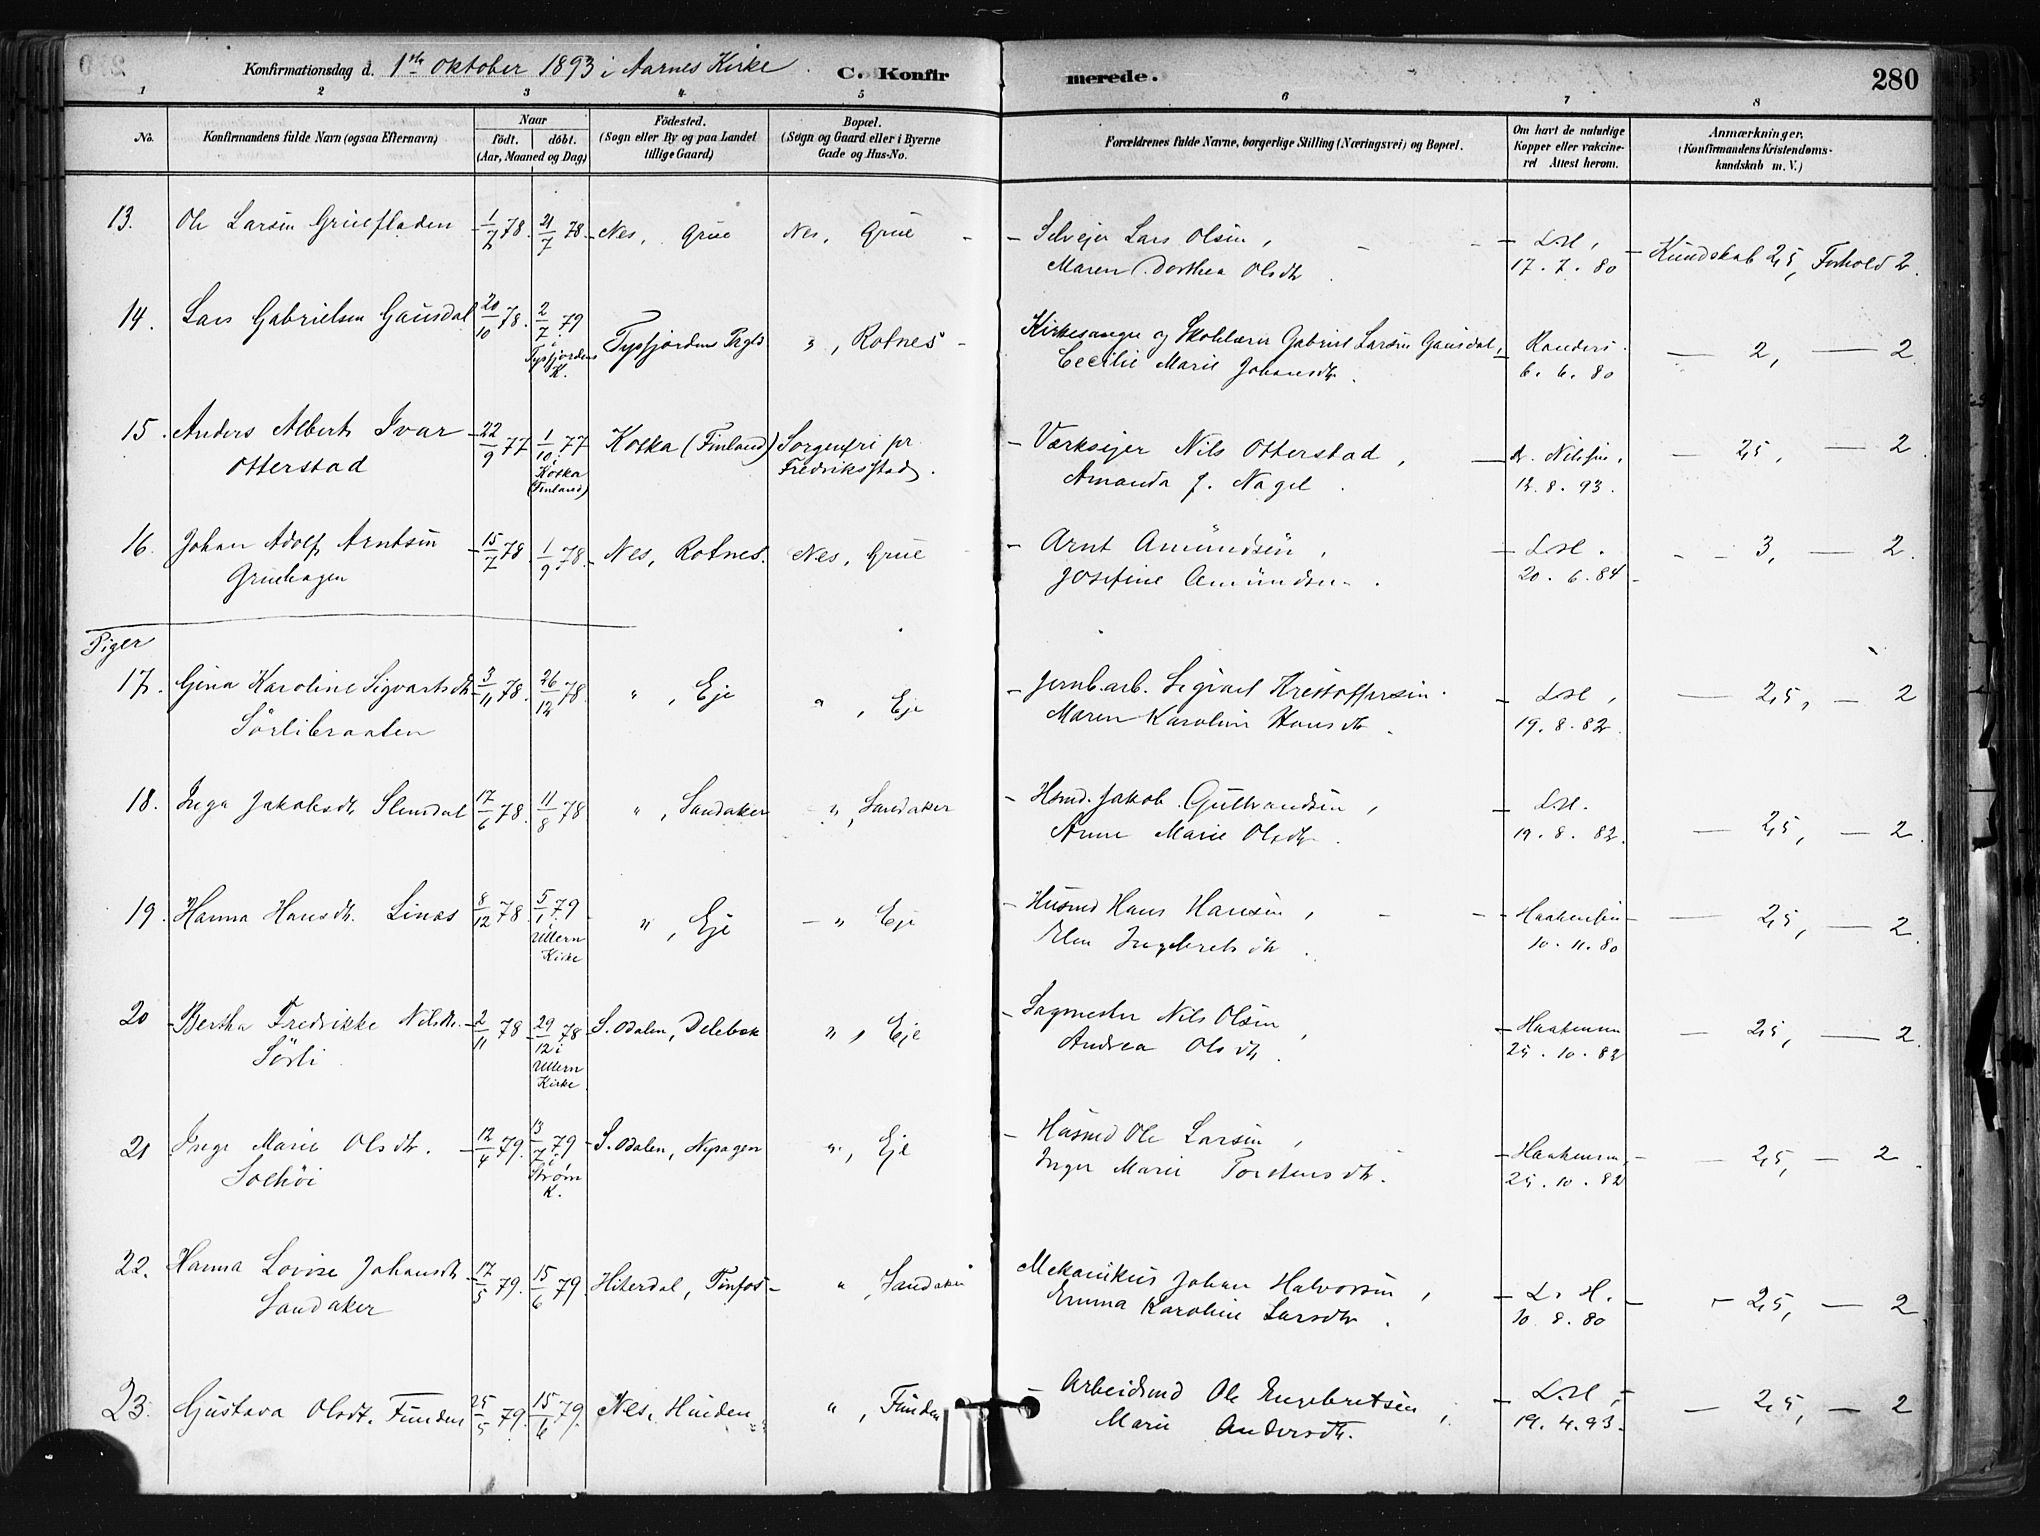 Konfirmationsdag d. 1ste Oktober 1893 i Aarnes Kirke C. Konfirmerede. 280
1 2 3 4 5 6 7 8
No. Konfirmandens fulde Navn (ogsaa Efternavn) Naar født. døbt. (Aar, Maaned og Dag) Fødested. (Sogn eller By og paa Landet tillige Gaard) Bopæl. (Sogn og Gaard eller i Byerne Gade og Hus-No. Forældrenes fulde Navne, borgerlige Stilling (Næringsvei) og Bopæl. Om havt de naturlige Kopper eller vakcineret Attest herom. Anmærkninger. (Konfirmandens Kristendomskundskab m. V.)
13. Ole Larsen Gruefladen 1/6 78. 21/7 78. Nes, Grue Nes, Grue Selvejer Lars Olsen, L.H, Kundskab 2,5, Forhold 2.
Maren Dorthea Olsdtr. 17.7.80
14. Lars Gabrielsen Gausdal 20/10 78. 2/7 79 i Tysfjordens K. Tysfjordens Prgld " , Rotnes Kirkesanger og Skolelærer Gabriel Larsen Gausdal, Randers. — 2, — 2
Cecilie Marie Johansdtr. 6.6.80
15. Anders Albert Ivar 22/9 77 1/10 77 i Kotka (Finland) Kotka (Finland) Sorgenfri pr. Værksejer Nils Otterstad, — 2,5, — 2
Otterstad Fredriksstad. Amanda J. Nagel. 12.8.93.
16. Johan Adolf Arntsen 15/7 78. 1/9 78. Nes, Rotnes. Nes, Grue Arnt Amundsen, L.H. — 3, — 2.
Gruehagen Josefine Amundsen. 20.6.84
Piger
17. Gina Karoline Sigvartsdtr. 3/11 78. 26/12 78. " , Eje " , Eje Jernb.arb. Sigvart Kristoffersen. L.H, — 2,5, — 2
Sørlibraaten Maren Karoline Hansdtr. 19.8.82.
18. Inga Jakobsdtr. Slemdal 17/6 78. 11/8 78 " , Sandaker " , Sandaker Hsmd. Jakob Gulbrandsen, L.H. — 2,5, — 2.
Anne Marie Olsdtr. 19.8.82.
19. Hanna Hansdtr. Linás 8/12 78. 5/1 79 i Ullern Kirke " , Eje " Eje Husmd Hans Hansen, — 2,5, — 2.
Elen Ingebretsdtr. 10.11.80
20 Bertha Fredrikke Nilsdtr. 2/11 78 29/12 78 i Ullern Kirke S. Odalen, Delebæk " , Eje Sagmester Nils Olsen, Haakensen — 2,5, — 2.
Sørli Andrea Olsdtr. 25.10.82
21 Inge Marie Olsdtr. 12/4 79. 13/7 79 i Strøm K. S. Odalen, " , Eje Husmd Ole Larsen, Haakensen, — 2,5, — 2.
Solhøi Inger Marie Torstensdtr. 25.10.82
22. Hanna Lovise Johansdtr 17/5 79. 15/6 79. Hiterdal, Tinfos " , Sandaker Mekanikus Johan Halvorsen, L. H. — 2,5, — 2
Sandaker Emma Karoline Larsdtr. 10.8.80
23. Gustava Olsdt. Funden 25/5 79. 15/6 79. Nes, Hunden " , Funden Arbeidsmd Ole Engebretsen, L.H, — 2,5, — 2
Marie Andersdtr. 19.4.93.